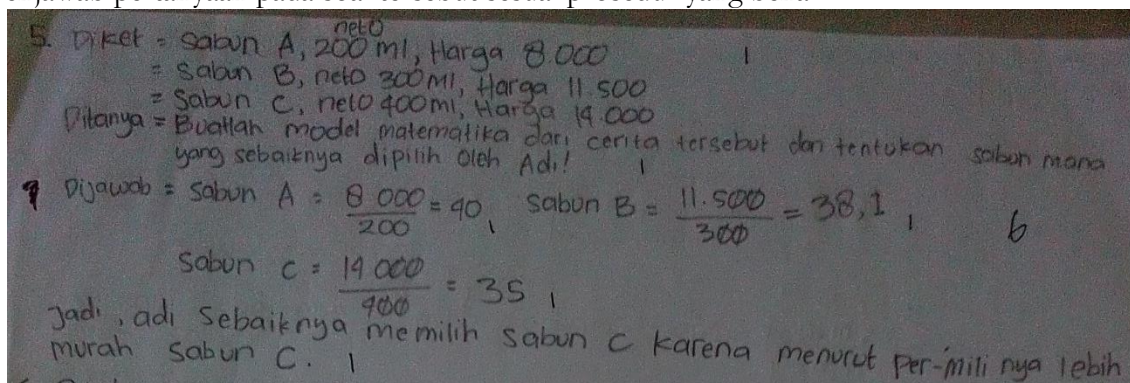 neto
5. Diket = Sabun A, 200 ml, Harga 8.000 1
= Sabun B, neto 300 ml, Harga 11.500
= Sabun C, neto 400 ml, Harga 14.000
Ditanya = Buatlah model matematika dari cerita tersebut dan tentukan sabun mana
yang sebaiknya dipilih oleh Adi! 1
Dijawab = Sabun A = 8 000 / 200 = 40 1 Sabun B = 11.500 / 300 = 38,1 1 6
Sabun C = 14 000 / 400 = 35 1
Jadi, adi Sebaiknya memilih sabun C karena menurut per-mili nya lebih
murah sabun C. 1